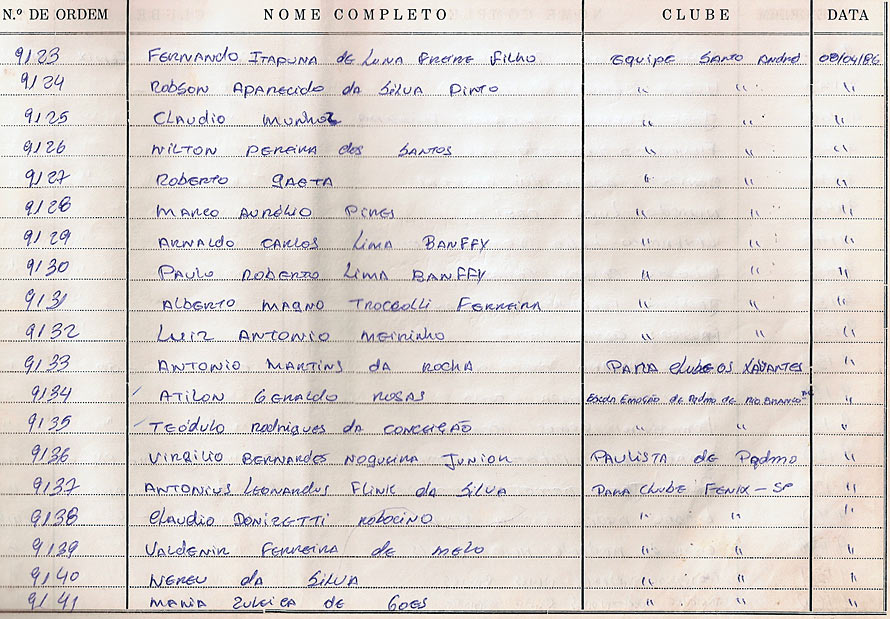 N.º DE ORDEM NOME COMPLETO CLUBE DATA
9123 FERNANDO ITAPUNA de LUNA FREIRE Filho Equipe SANTO André 08/04/86
9124 ROBSON APARECIDO da SILVA PINTO " " "
9125 CLAUDIO MUNHOZ " " "
9126 NILTON PEREIRA dos SANTOS " " "
9127 ROBERTO GAETA " " "
9128 MARCO AURÉLIO PIRES " " "
9129 ARNALDO CARLOS LIMA BANFFY " " "
9130 PAULO ROBERTO LIMA BANFFY " " "
9131 ALBERTO MAGNO TROCCOLLI FERREIRA " " "
9132 LUIZ ANTONIO MEIRINHO " " "
9133 ANTONIO MARTINS DA ROCHA PARA clube OS XAVANTES "
9134 ATILON GERALDO ROSAS Escola Emoção de Pqdmo de Rio BRANCO "
9135 TEÓDULO Rodrigues da CONCEIÇÃO " " "
9136 VIRGILIO BERNARDES NOGUEIRA JUNIOR PAULISTA de Pqdmo "
9137 ANTONIUS LEONARDUS FLINK da SILVA PARA CLUBE FENIX - SP "
9138 CLAUDIO DONIZETTI ROBOCINO " " "
9139 VALDENIR FERREIRA DE MELO " " "
9140 NEREU da SILVA " " "
9141 MARIA ZULEICA de GOES " " "